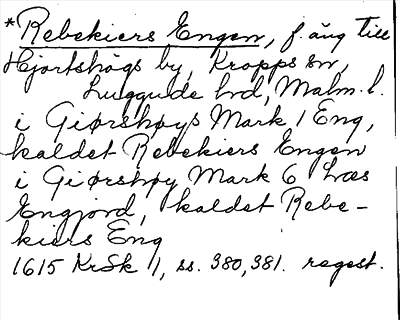 *Rebekiers Engen, f. äng till
Hjortshögs by, Kropps sn,
Luggude hd, Malm. l.
i Giørshøys Mark 1 Eng,
kaldet Rebekiers Engen
i Giørshøy Mark 6 Læs
Engjord, kaldet Rebe-
kiers Eng
1615 KrSk 1, ss. 380, 381. regest.